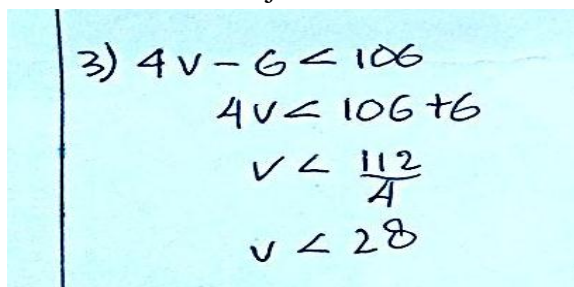 3) 4v - 6 < 106
4v < 106 + 6
v < 112/4
v < 28